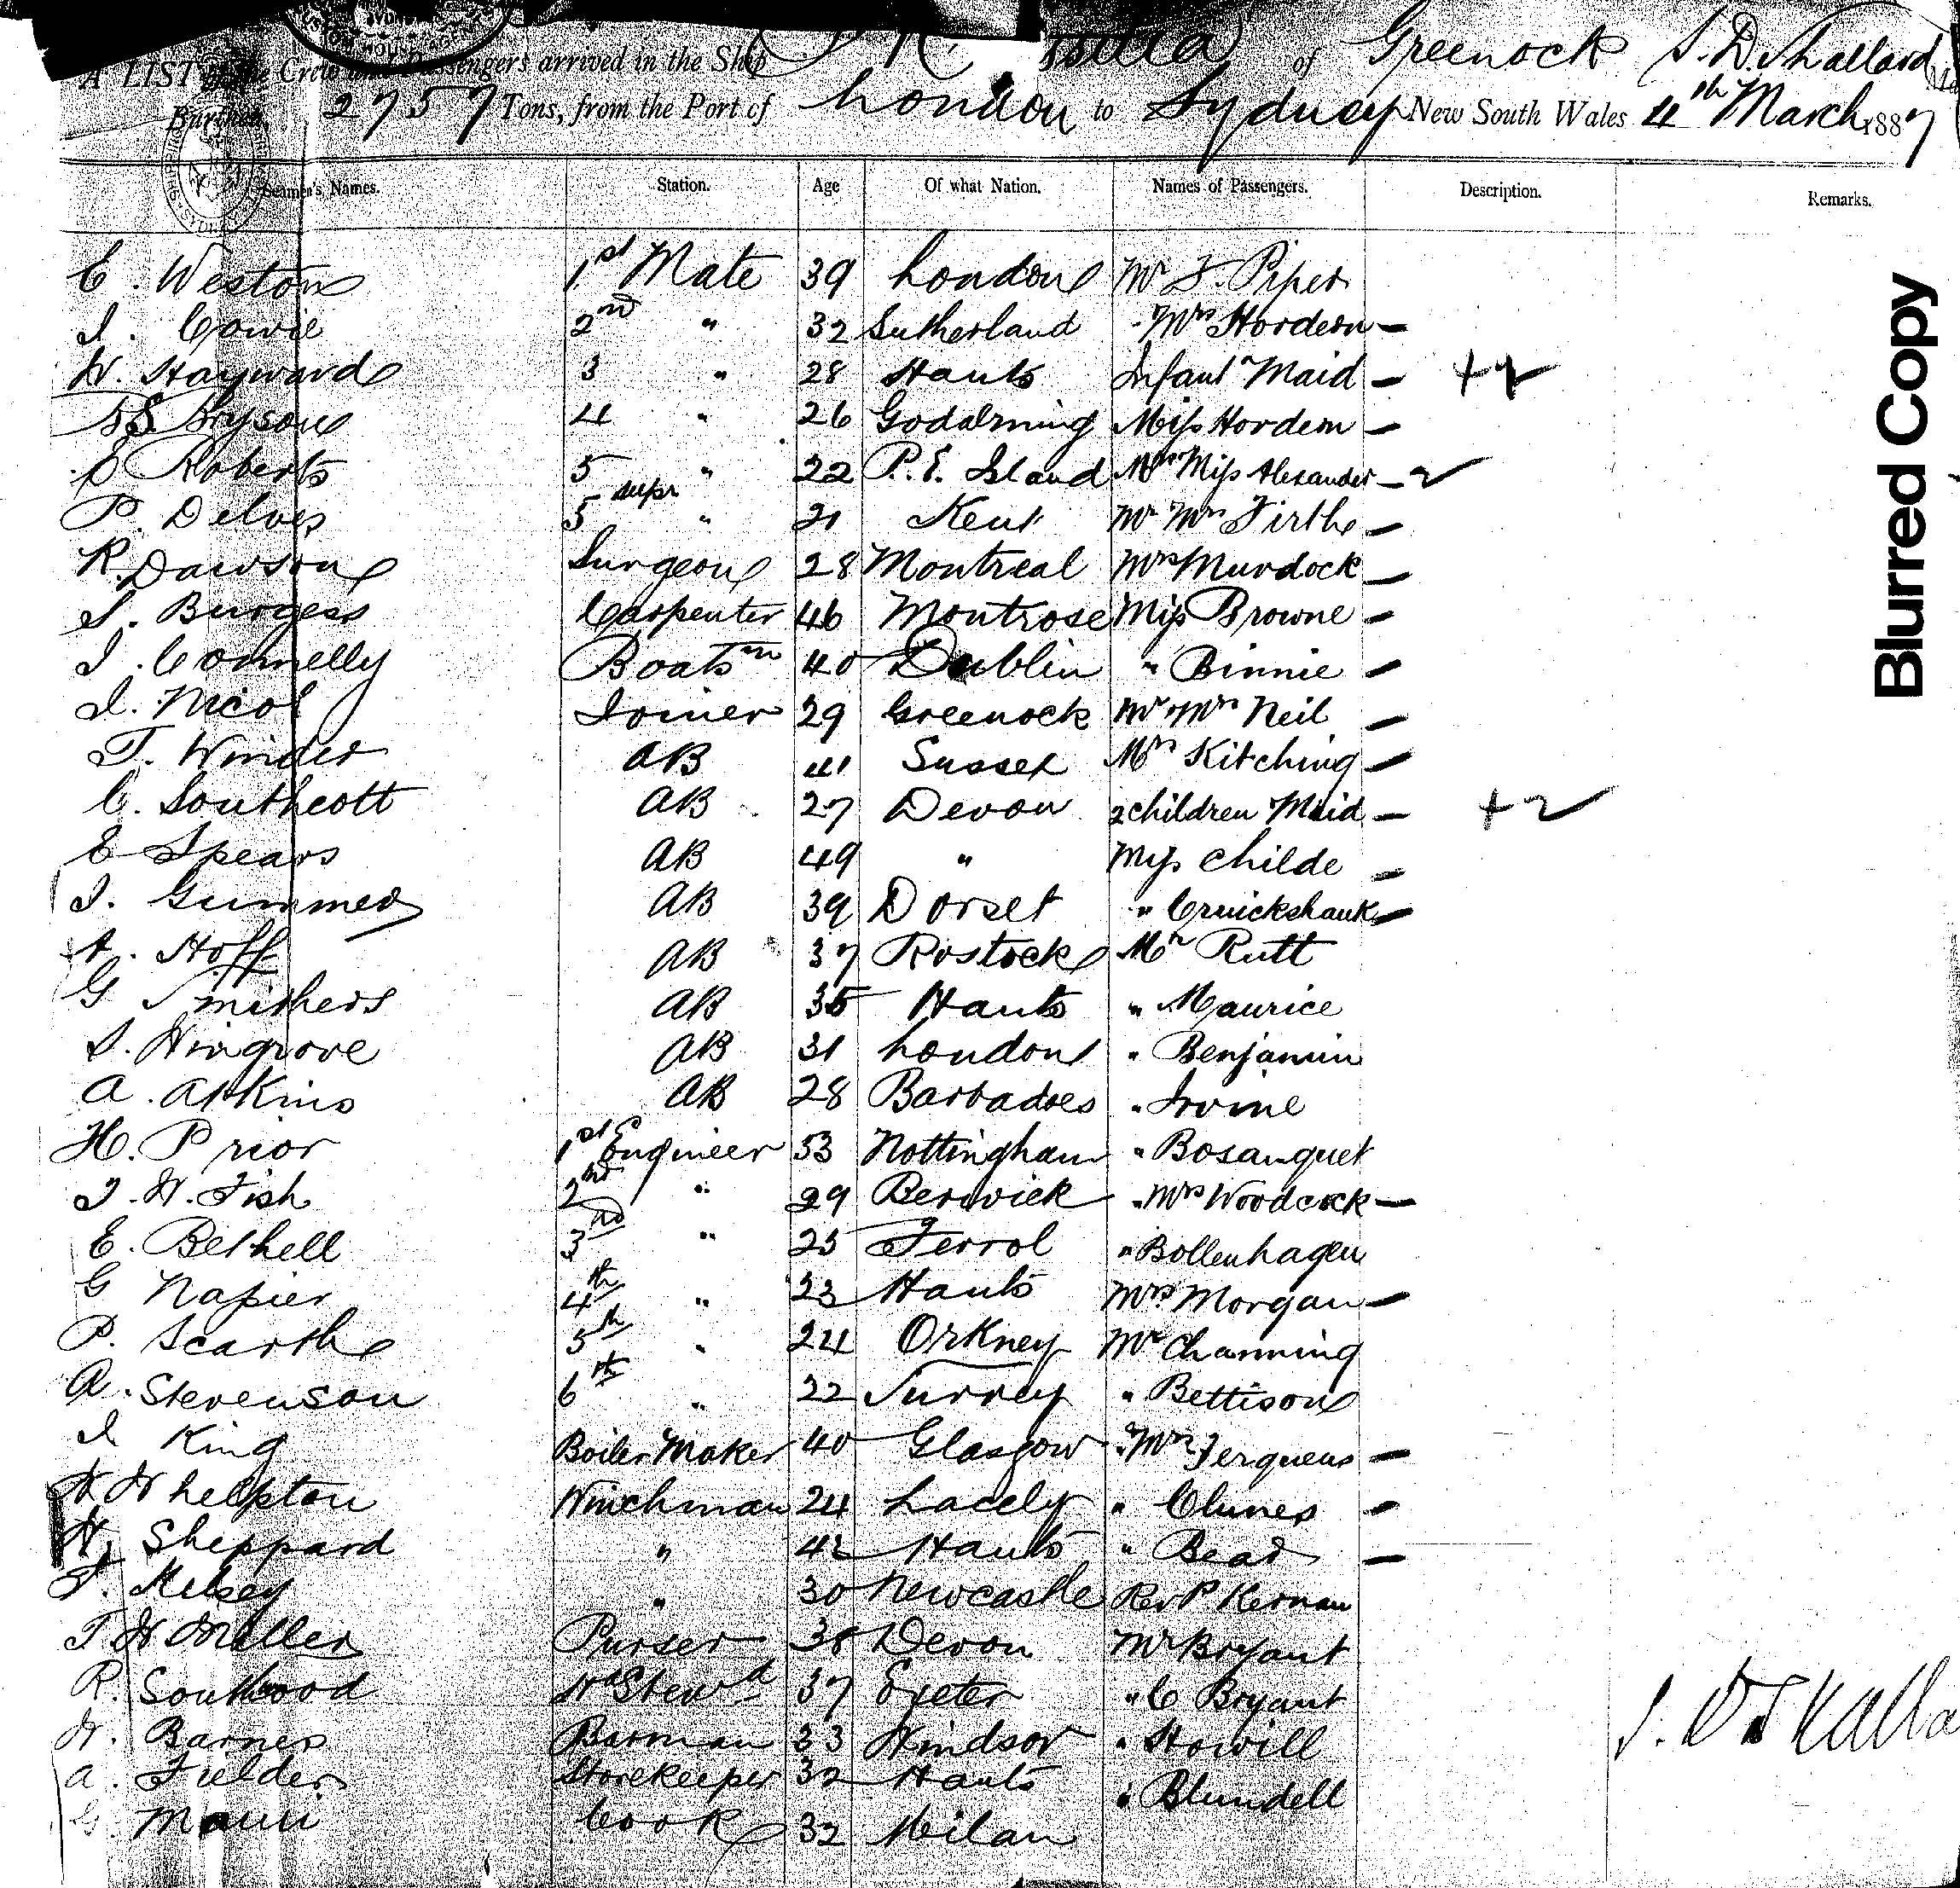 A LIST of the Crew and Passengers arrived in the Ship of Greenock S. D. Shallard
Burthen 2757 Tons, from the Port of London to Sydney New South Wales 4th March 1887
Seamen's Names. Station. Age Of what Nation. Names of Passengers. Description. Remarks.
C. Weston 1st Mate 39 London Mr F. Piper
J. Cowie 2nd " 32 Sutherland " Mrs Hordern -
W. Hayward 3 " 28 Hants Infant Maid -
Bryson 4 " 26 Godalming Miss Hordern -
Roberts 5 " 22 P. E. Island Miss Alexander - 2
P. Delves 5 supr " 21 Kent Mr Mrs Firth -
R. Dawson Surgeon 28 Montreal Mrs Murdock -
S. Burgess Carpenter 46 Montrose Miss Browne -
J. Connelly Boatsn 40 Dublin " Binnie -
J. Nicol Joiner 29 Greenock Mr Mrs Neil -
T. Winder AB 41 Sussex Mrs Kitching -
C. Southcott AB 27 Devon 2 children Maid - + 2
E Spears AB 49 " Miss Childe -
J. Gummer AB 39 Dorset " Cruickshank -
A. Hoff AB 37 Rostock Mr Rutt
G Smithers AB 35 Hants " Maurice
S. Wingrove AB 31 London " Benjamin
A. Atkins AB 28 Barbadoes " Irvine
H. Prior 1st Engineer 53 Nottingham " Bosanquet
J. W. Fish 2nd " 29 Berwick " Mrs Woodcock -
E. Bethell 3rd " 25 Ferrol " Bollenhagen
G Napier 4th " 23 Hants Mrs Morgan -
P. Scarth 5th " 24 Orkney Mr Channing
A. Stevenson 6th " 22 Surrey " Bettison
J King Boiler Maker 40 Glasgow " Mrs -
W Whelpton Winchman 24 " Clunes -
W. Sheppard " 42 Hants " -
T. Kelsey " 30 Newcastle Rev P Kernan
T W Miller Purser 38 Devon Mr Bryant
R. Southwood Stewd 37 Exeter " C Bryant
W. Barnes Barman 33 Windsor " Howill
A. Fielder Storekeeper 32 Hants " Blundell
G. Cook 32 Milan
Blurred Copy